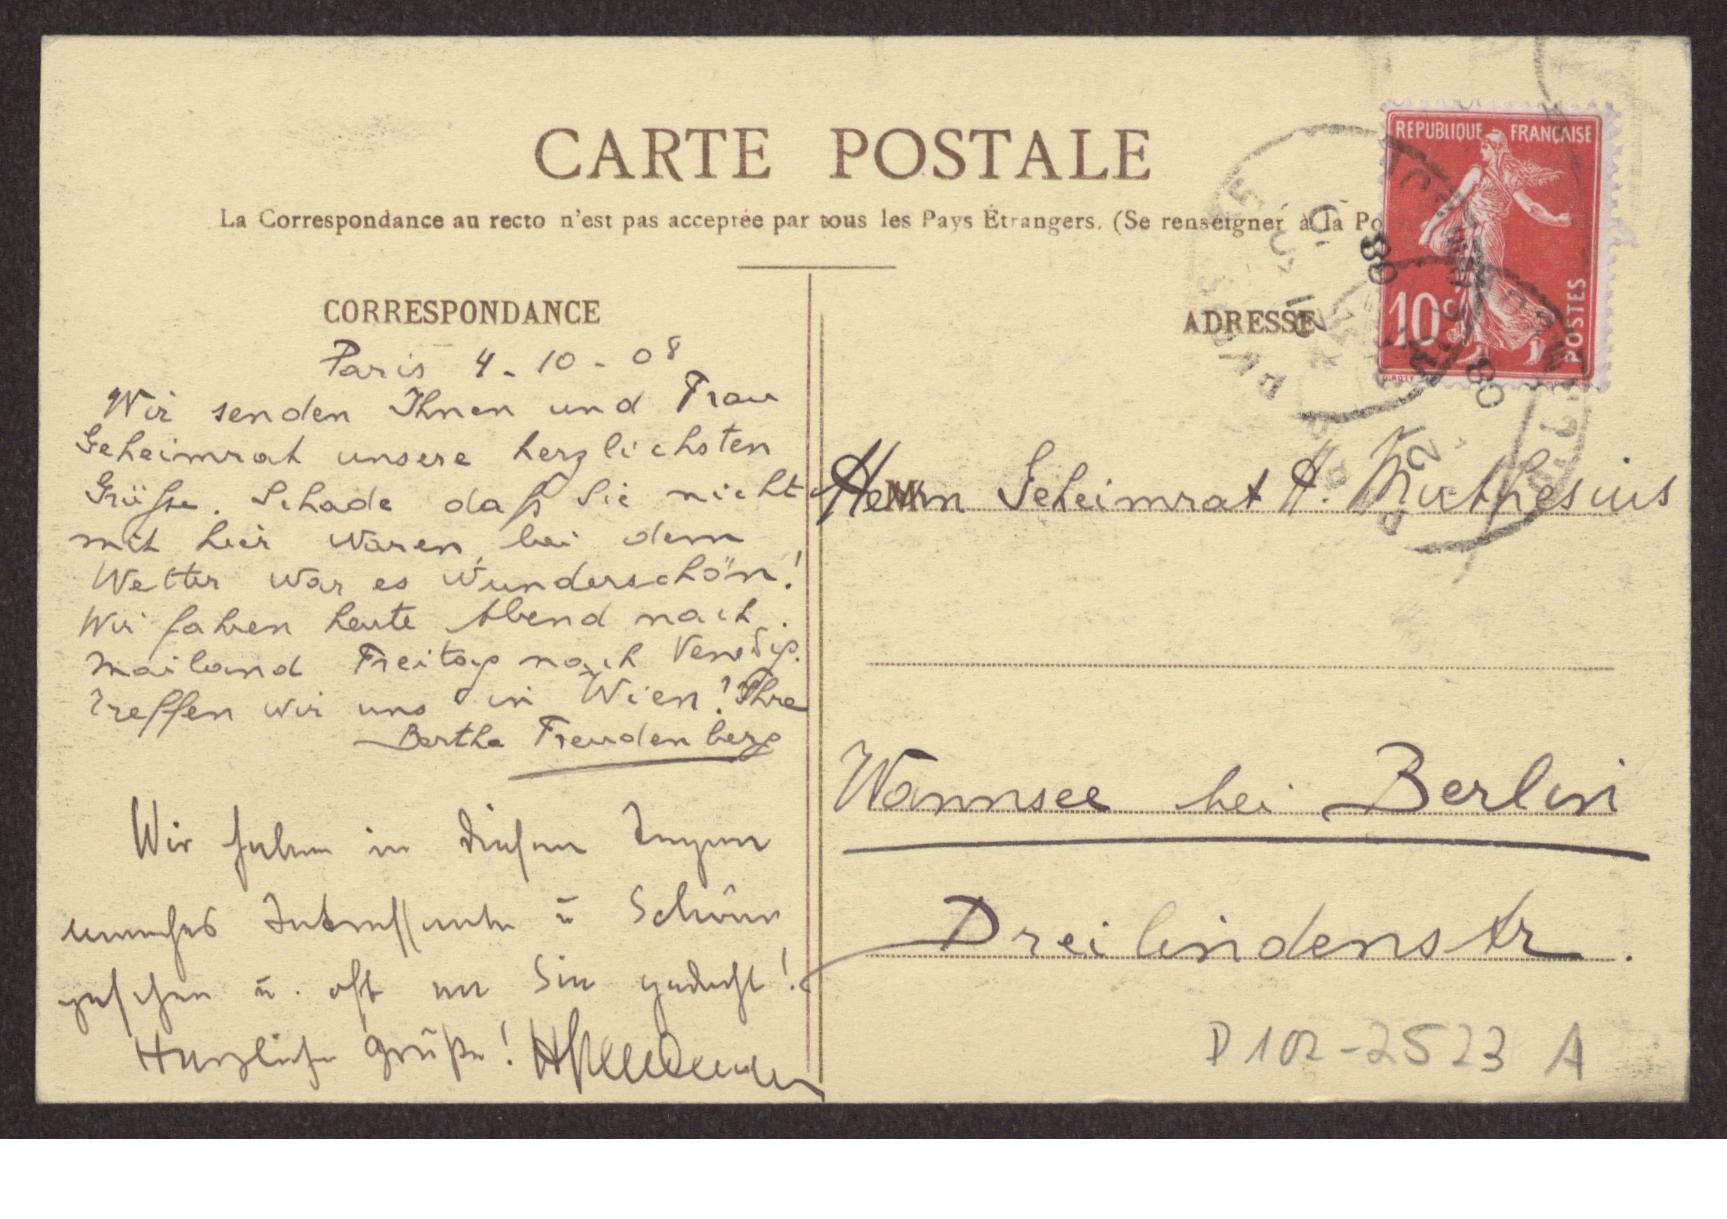 CARTE POSTALE
La Correspondance au recto n'est pas acceptée par tous les Pays Étrangers. (Se renseigner à la Po
CORRESPONDANCE
Paris 4-10-08
Wir senden Ihnen und Frau
Geheimrat unsere herzlichsten
Grüße. Schade daß Sie nicht
mit hier waren, bei dem
Wetter war es wunderschön!
Wir fahren heute Abend nach
Mailand Freitag nach Venedig.
Treffen wir uns in Wien? Ihre
Bertha Freudenberg
Wir haben in diesen Tagen
manches Interessante u Schöne
gesehen u. oft an Sie gedacht!
Herzliche Grüße!
ADRESSE
REPUBLIQUE FRANÇAISE
10c
POSTES
08
08
Herrn Geheimrat H. Muthesius
Wannsee bei Berlin
Dreilindenstr.
D 102-2523 A